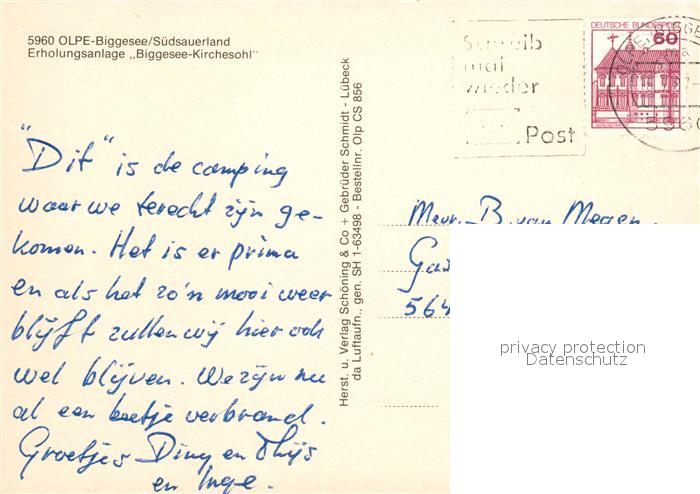 5960 OLPE-Biggesee/Südsauerland
Erholungsanlage „Biggesee-Kirchesohl"
Schreib
mal
wieder
Post
DEUTSCHE BUNDESPOST
60
OLPE, BIGGE
5960
"Dit" is de camping
waar we terecht zijn ge-
komen. Het is er prima
en als het zo'n mooi weer
blijft zullen wij hier ook
wel blijven. We zijn nu
al een beetje verbrand.
Groetjes Diny en Thijs
en Inge.
Herst. u. Verlag Schöning & Co + Gebrüder Schmidt - Lübeck
da Luftaufn., gen. SH 1-63498 - Bestellnr. Olp CS 856
Mevr. B. van Megen.
564
privacy protection
Datenschutz